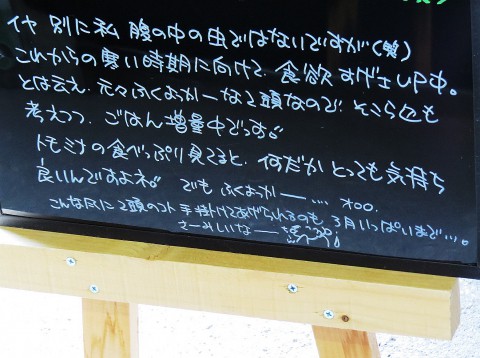 イヤ 別に私 腹の中の虫ではないですが(笑)
これからの寒い時期に向けて、食欲 すげェUP中。
とは云え、元々ふくよっかーな2頭なので、そこら辺も
考えつつ、ごはん増量中でっす。
トモミナの食べっぷり見てると、何だか とっても気持ち
良いんですよネ。 でも ふくよっかー…
こんな風に2頭のコト 手掛けてあげられるのも 3月いっぱいまで…。
さーみしいなー